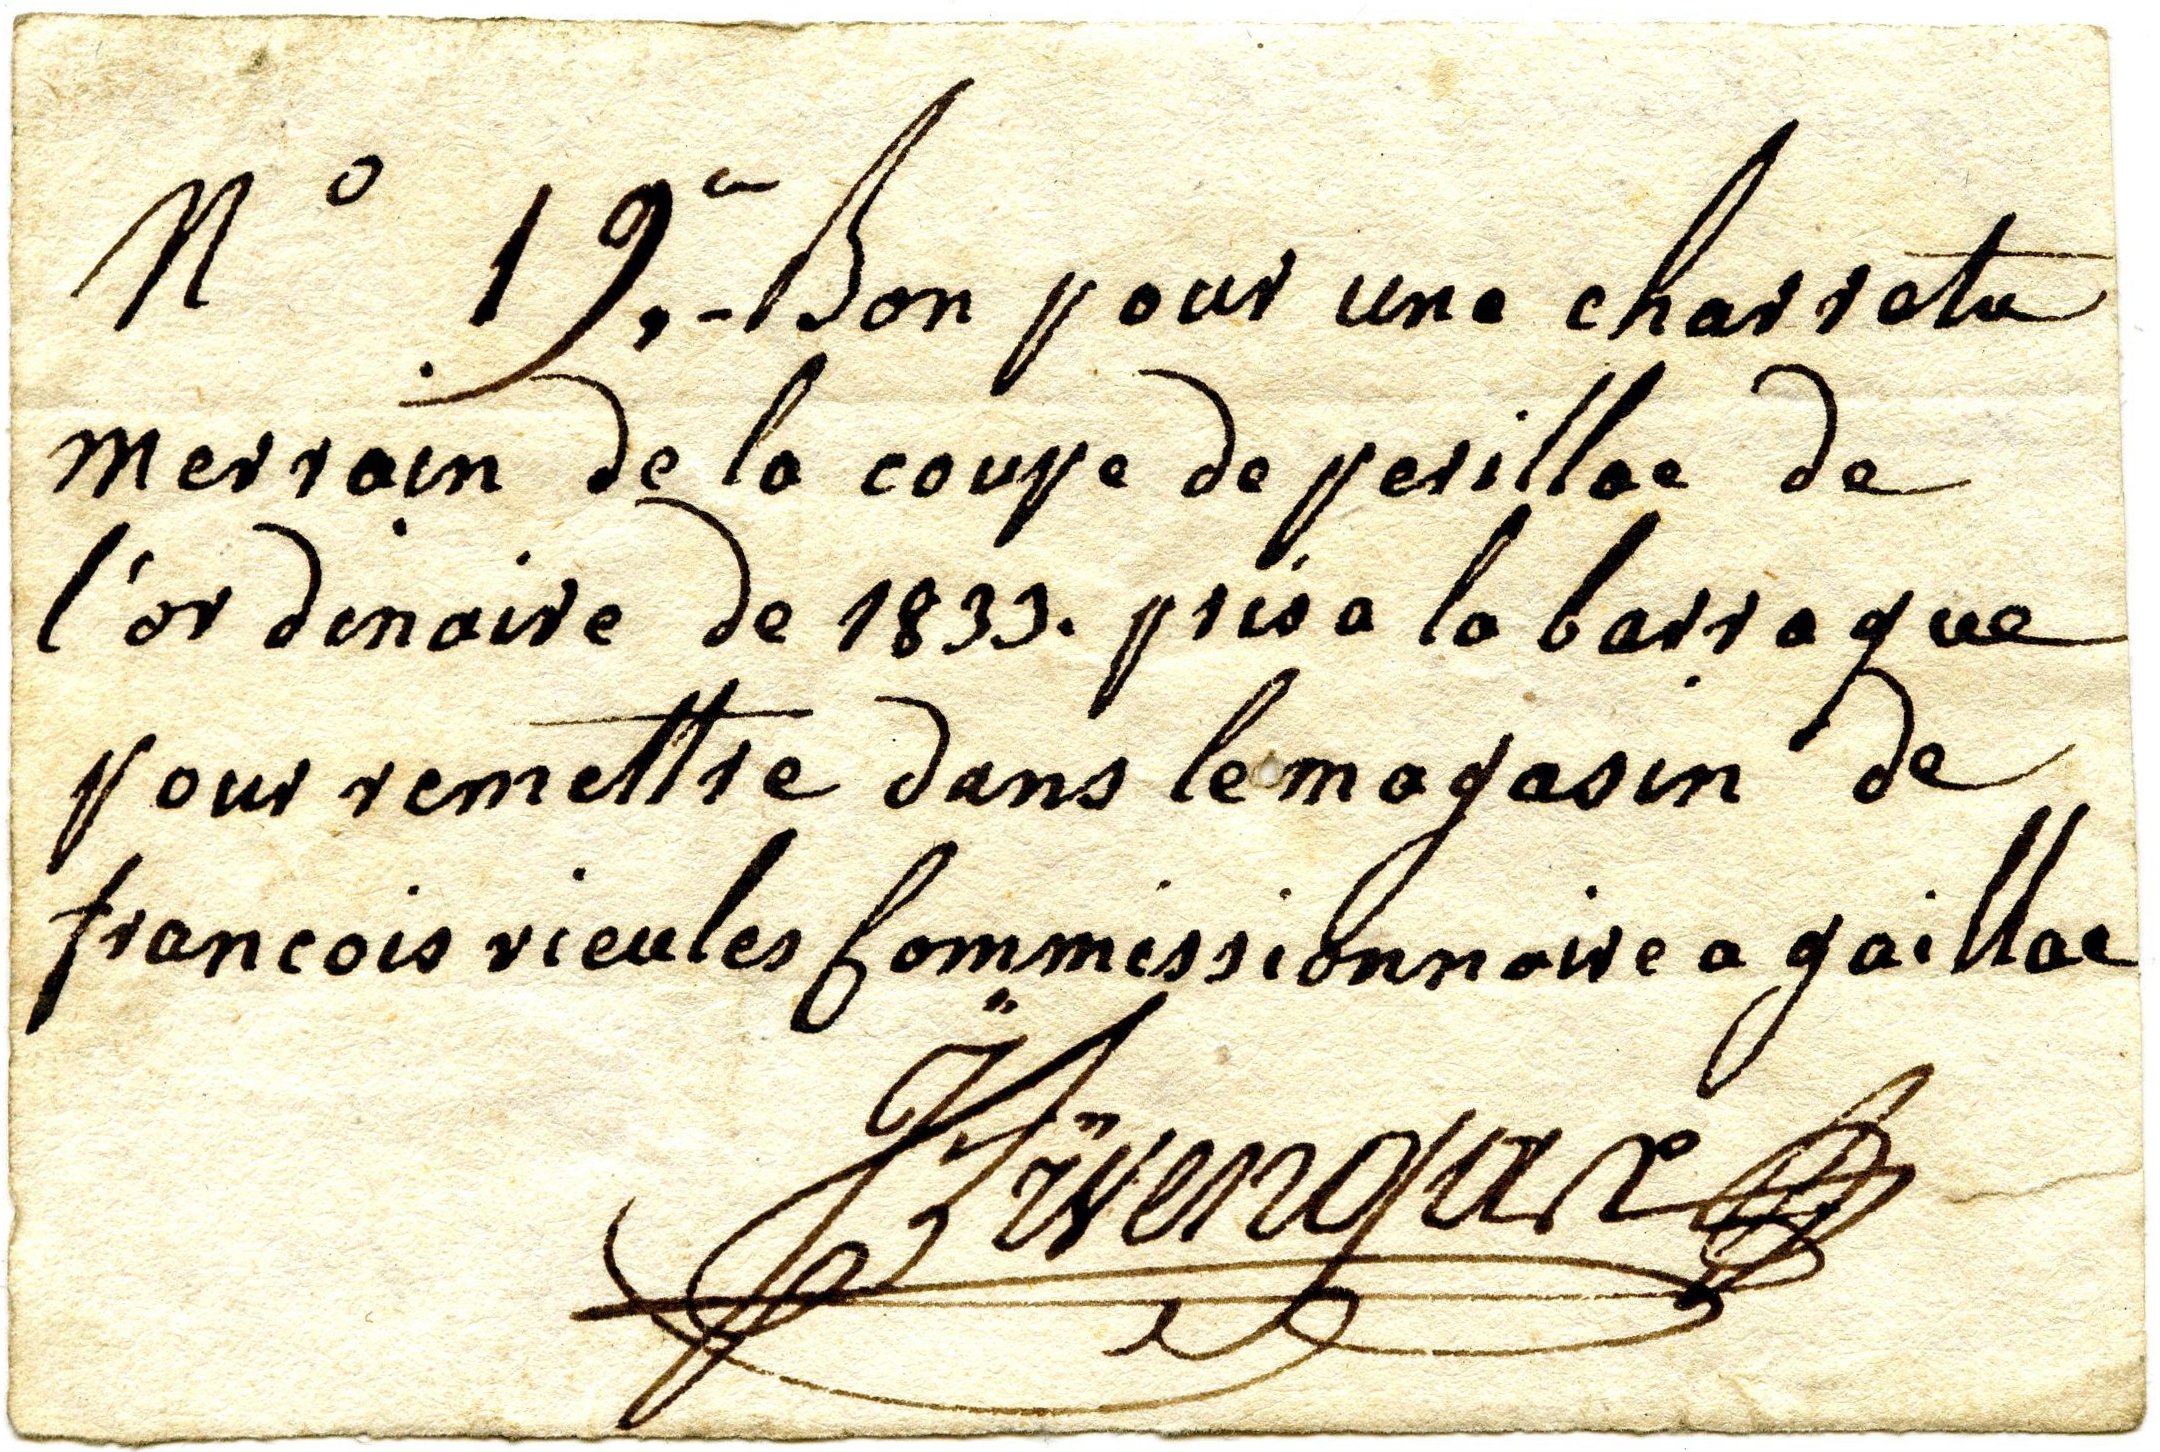 N° 19,- Bon pour une charretee
merrain de la coupe de perillac de
l'ordinaire de 1833. pris a la barraque
pour remettre dans le magasin de
francois rieules Commissionnaire a gaillac